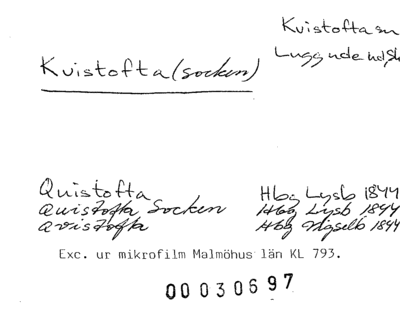 Kvistofta sn
Luggude hd Sk
Kvistofta (socken)
Quistofta Hbg Lysb 1844
Quistofta Socken Hbg Lysb 1844
Qvistofta Hbg Vigselb 1844
Exc. ur mikrofilm Malmöhus län KL 793.
00030697